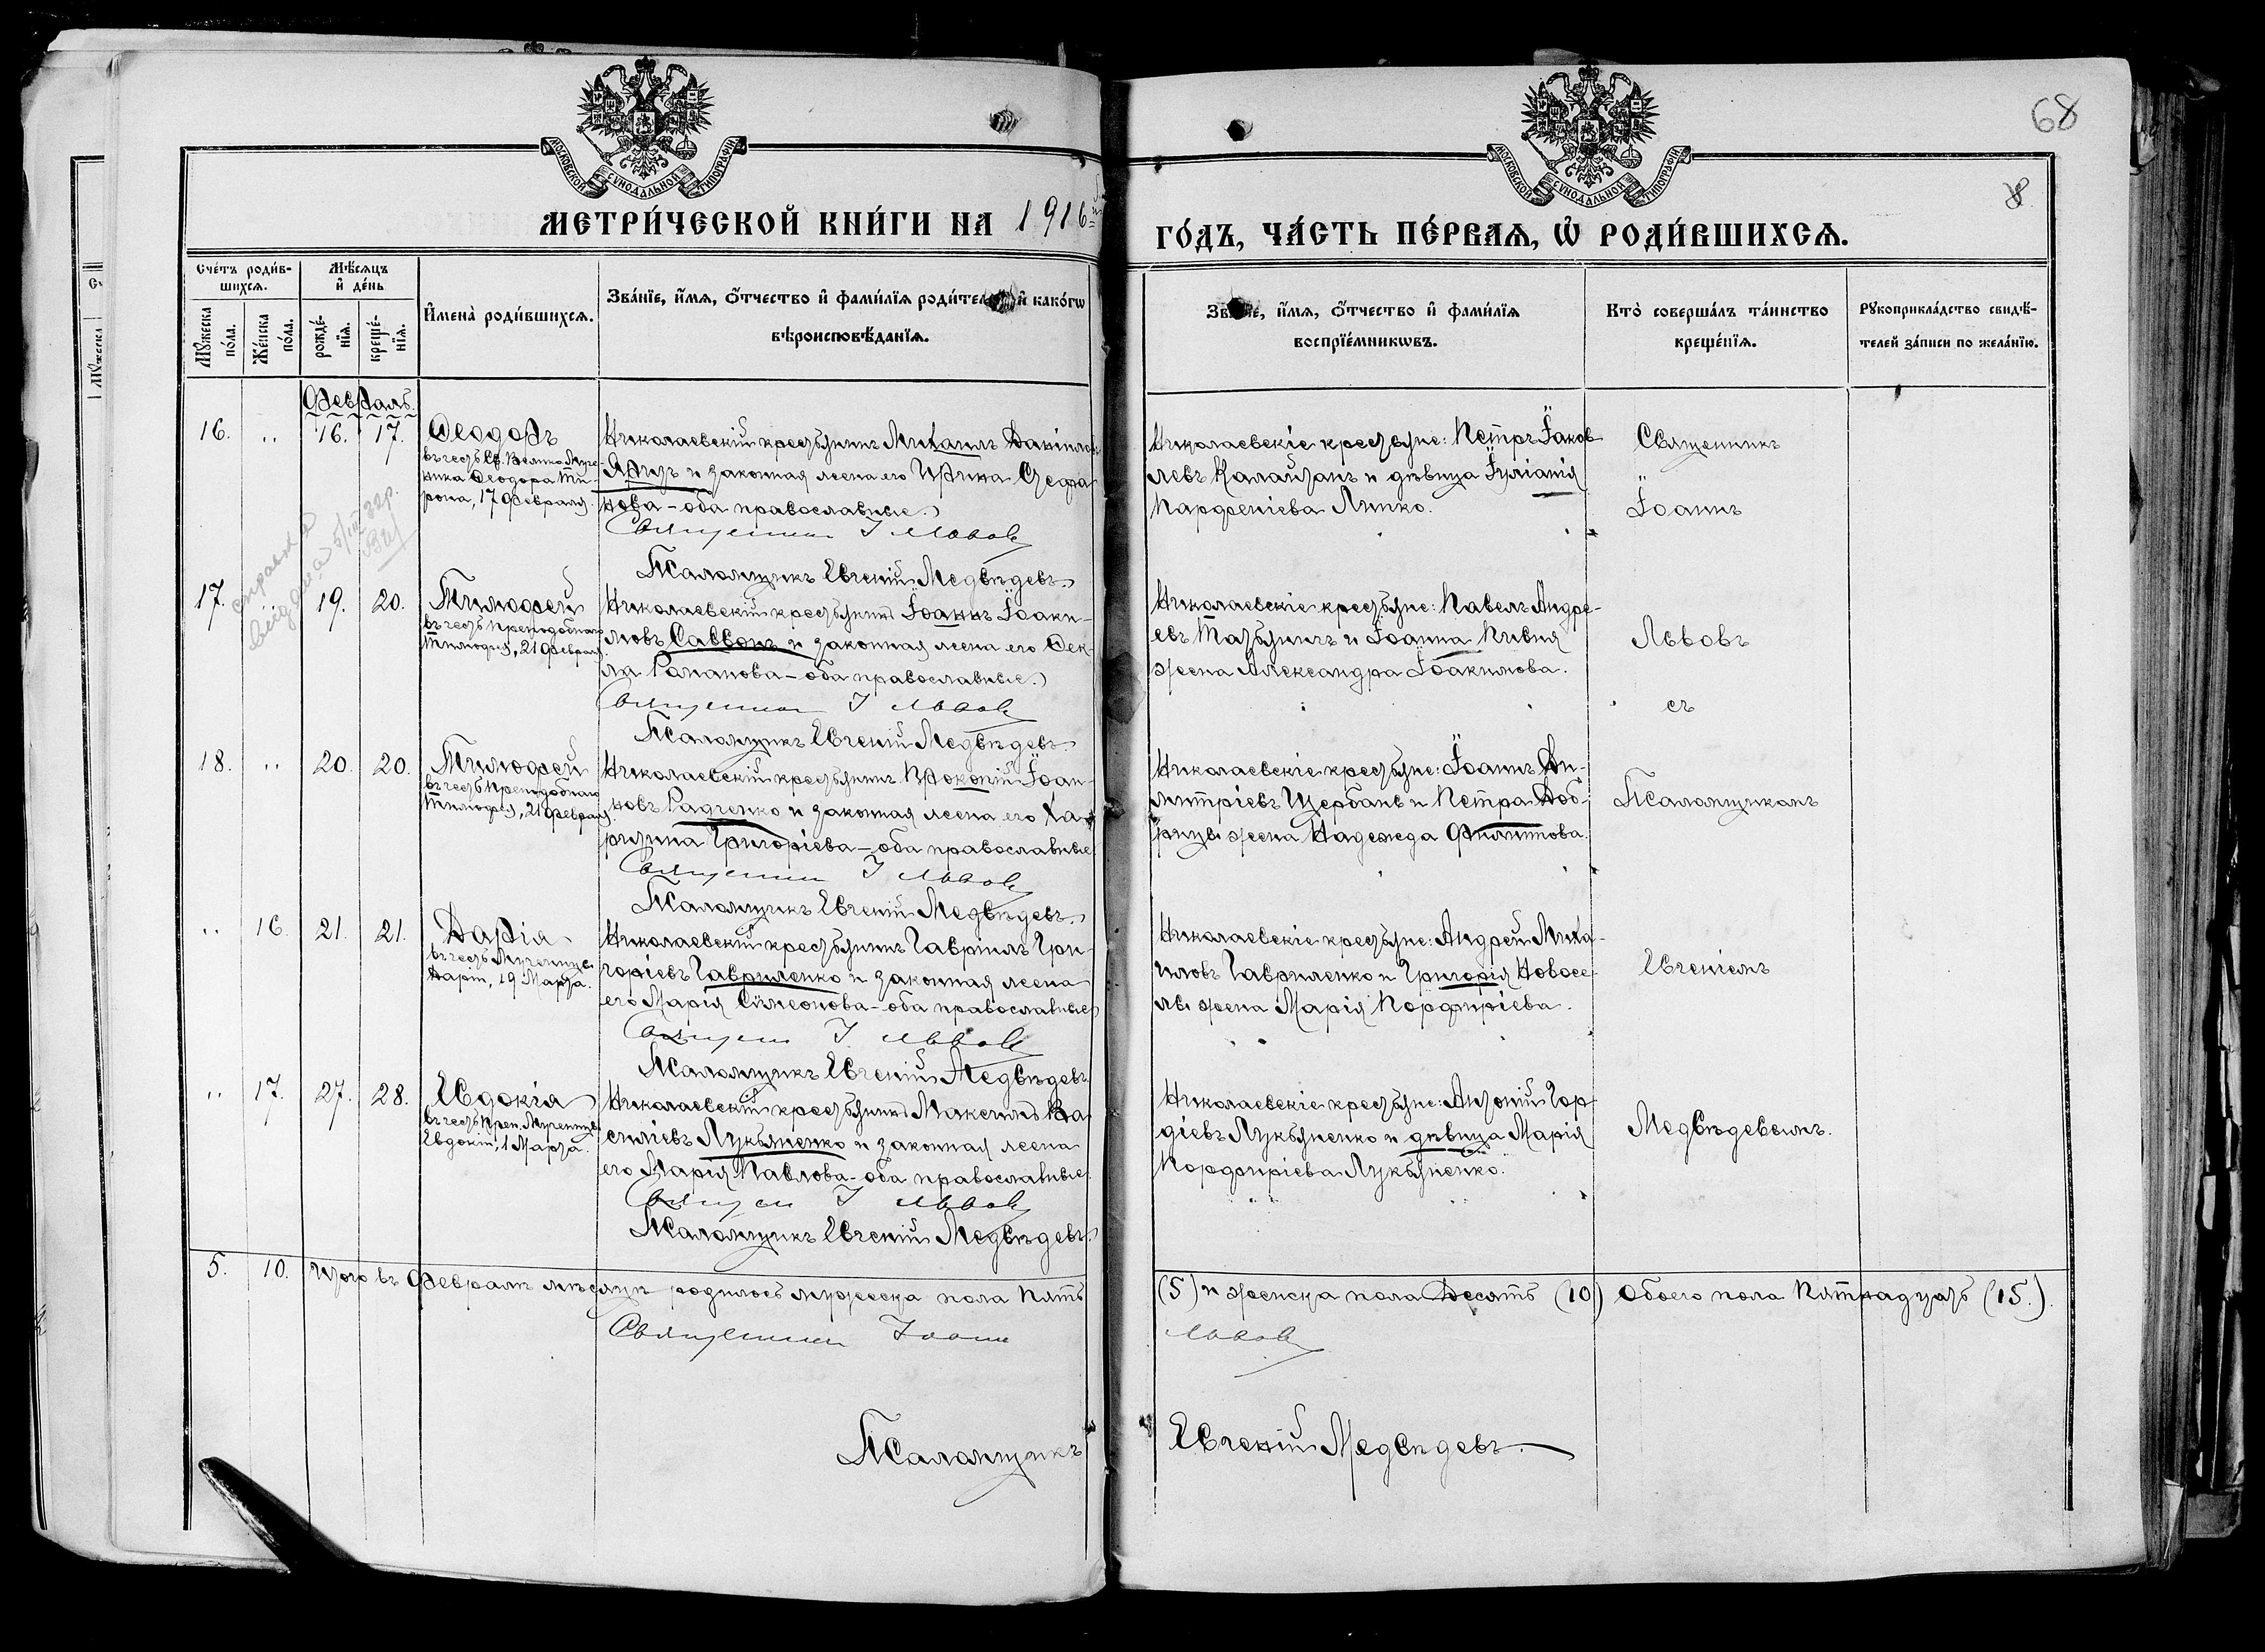 68
8
МОСКОВСКОЙ СѴНОДАЛЬНОЙ ТИПОГРАФІИ
МОСКОВСКОЙ СѴНОДАЛЬНОЙ ТИПОГРАФІИ
МЕТРИ́ЧЕСКОЙ КНИ́ГИ НА 1916
ГО́ДЪ, ЧА́СТЬ ПЕ́РВАѦ, Ѡ҆ РОДИ́ВШИХСѦ.
Сче́тъ роди́в-
шихсѧ.
Мѣ́сѧцъ
и҆ де́нь
Мꙋ́жеска
по́ла.
Же́нска
по́ла.
рожде́-
нїѧ.
креще́-
нїѧ.
И҆мена̀ роди́вшихсѧ.
Зва́нїе, и҆́мѧ, ѻ҆́тчество и҆ фами́лїѧ роди́тел и҆ како́гѡ
вѣроисповѣ́данїѧ.
и҆́мѧ, ѻ҆́тчество и҆ фами́лїѧ
воспрїе́мникѡвъ.
Кто̀ соверша́лъ та́инство
креще́нїѧ.
Рꙋкоприкла́дство свидѣ́-
телей за́писи по жела́нїю.
Февраль.
16. „ 16. 17. Ѳеодоръ
въ честь Св. Велико Муче-
ника Ѳеодора Ти-
рона, 17 Февраля.
Николаевскій крестьянинъ Михаилъ Даніилов
и законная жена его Ирина Стефа
нова – оба православные.
Священникъ І Львовъ
Псаломщикъ Евгеній Медвѣдевъ.
Николаевскіе крестьяне: Петръ Іаков
левъ и дѣвица Іуліанія
Парѳеніева Линко.
Священникъ
„
Іоаннъ
справка
выдана 5/III 22г.
17. „ 19. 20. Тимоѳей
въ честь Преподобнаго
Тимоѳея, 21 Февраля
Николаевскій крестьянинъ Іоаннъ Іоаки-
мовъ Саввонъ и законная жена его Ѳек-
ла Романова – оба православные.
Священникъ І Львовъ
Псаломщикъ Евгеній Медвѣдевъ.
Николаевскіе крестьяне: Павелъ Андре-
евъ и Іоанна Пивня
жена Александра Іоакимова.
Львовъ
съ
18. „ 20. 20. Тимоѳей
въ честь Преподобнаго
Тимоѳея, 21 Февраля
Николаевскій крестьянинъ Прокопій Іоан-
новъ Радченко и законная жена его Ха-
ритина Григоріева – оба православные
Священникъ І Львовъ
Псаломщикъ Евгеній Медвѣдевъ.
Николаевскіе крестьяне: Іоаннъ Ди-
митріевъ Щербань и Петра Доб-
жена Надежда Филиппова.
Псаломщикомъ
„ 16. 21. 21. Дарія
въ честь Мученицы
Даріи, 19 Марта.
Николаевскій крестьянинъ Гавріилъ Гри-
горіевъ Гавриленко и законная жена
его Марія Сѵмеонова – оба православные
Священ І Львовъ
Псаломщикъ Евгеній Медвѣдевъ.
Николаевскіе крестьяне: Андрей Миха-
иловъ Гавриленко и Григорія Новосе-
лы жена Марія Порфиріева.
Евгеніемъ
„ 17. 27. 28. Евдокія
въ честь Преп. Мученицы
Евдокіи, 1 Марта.
Николаевскій крестьянинъ Максимъ Ва
силіевъ Лукьяненко и законная жена
его Марія Павлова – оба православные.
Священ І Львовъ
Псаломщикъ Евгеній Медвѣдевъ.
Николаевскіе крестьяне: Антоній Гор
діевъ Лукьяненко и дѣвица Марія
Порфиріева Лукьяненко.
Медвѣдевымъ.
5. 10. Итого въ Февралѣ мѣсяцѣ родилось мужеска пола Пять
(5) и женска пола Десять (10) Обоего пола Пятнадцать (15.).
Священникъ Іоаннъ
Львовъ
Псаломщикъ
Евгеній Медвѣдевъ.